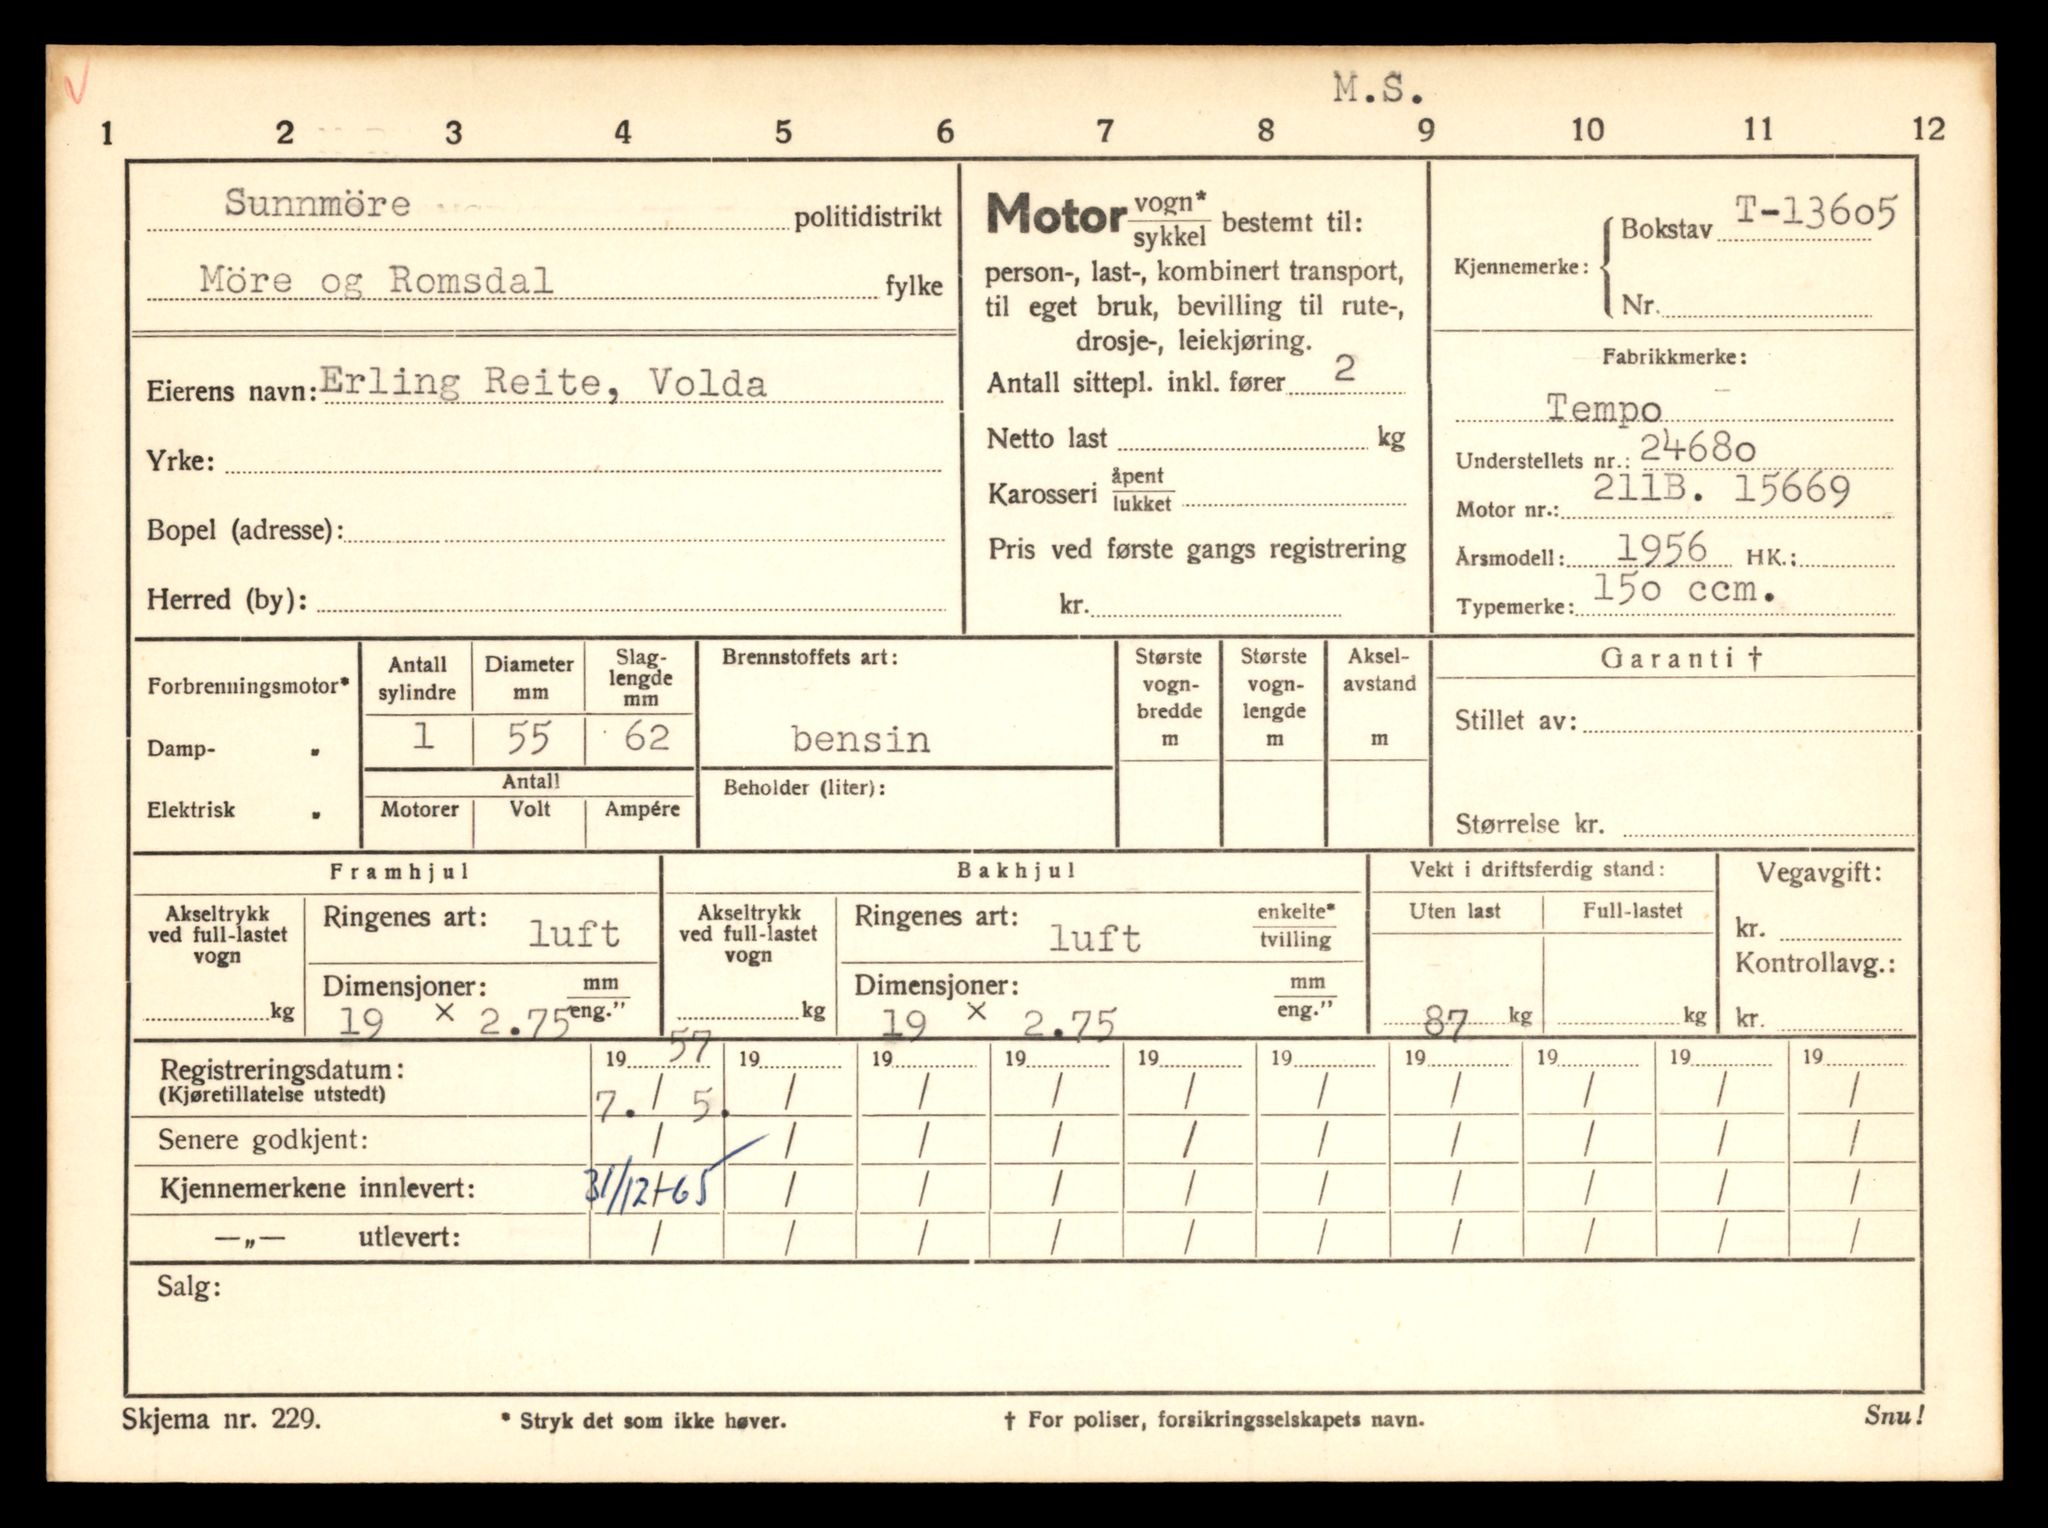 M.S.
1 2 3 4 5 6 7 8 9 10 11 12
Sunnmöre politidistrikt
Möre og Romsdal fylke
Eierens navn: Erling Reite, Volda
Yrke:
Bopel (adresse):
Herred (by):
Motor vogn* / sykkel bestemt til:
person-, last-, kombinert transport,
til eget bruk, bevilling til rute-,
drosje-, leiekjøring.
Antall sittepl. inkl. fører 2
Netto last kg
Karosseri åpent / lukket
Pris ved første gangs registrering
kr.
Kjennemerke: { Bokstav T-13605
Nr.
Fabrikkmerke:
Tempo
Understellets nr.: 24680
Motor nr.: 211B. 15669
Årsmodell: 1956 HK.:
Typemerke: 150 ccm.
Forbrenningsmotor*
Damp- „
Elektrisk „
Antall sylindre
1
Diameter mm
55
Slag-lengde mm
62
Antall
Motorer Volt Ampére
Brennstoffets art:
bensin
Beholder (liter):
Største vogn-bredde m
Største vogn-lengde m
Aksel-avstand m
Garanti †
Stillet av:
Størrelse kr.
Framhjul
Akseltrykk ved full-lastet vogn
kg
Ringenes art: luft
Dimensjoner: mm / eng."
19 × 2.75
Bakhjul
Akseltrykk ved full-lastet vogn
kg
Ringenes art: luft enkelte* / tvilling
Dimensjoner: mm / eng."
19 × 2.75
Vekt i driftsferdig stand:
Uten last Full-lastet
87 kg kg
Vegavgift:
kr.
Kontrollavg.:
kr.
Registreringsdatum: 19 57 19 19 19 19 19 19 19 19 19
(Kjøretillatelse utstedt) 7. / 5. / / / / / / / / /
Senere godkjent: / / / / / / / / / /
Kjennemerkene innlevert: 31/12-65 / / / / / / / / /
—„— utlevert: / / / / / / / / / /
Salg:
Skjema nr. 229. * Stryk det som ikke høver. † For poliser, forsikringsselskapets navn. Snu!